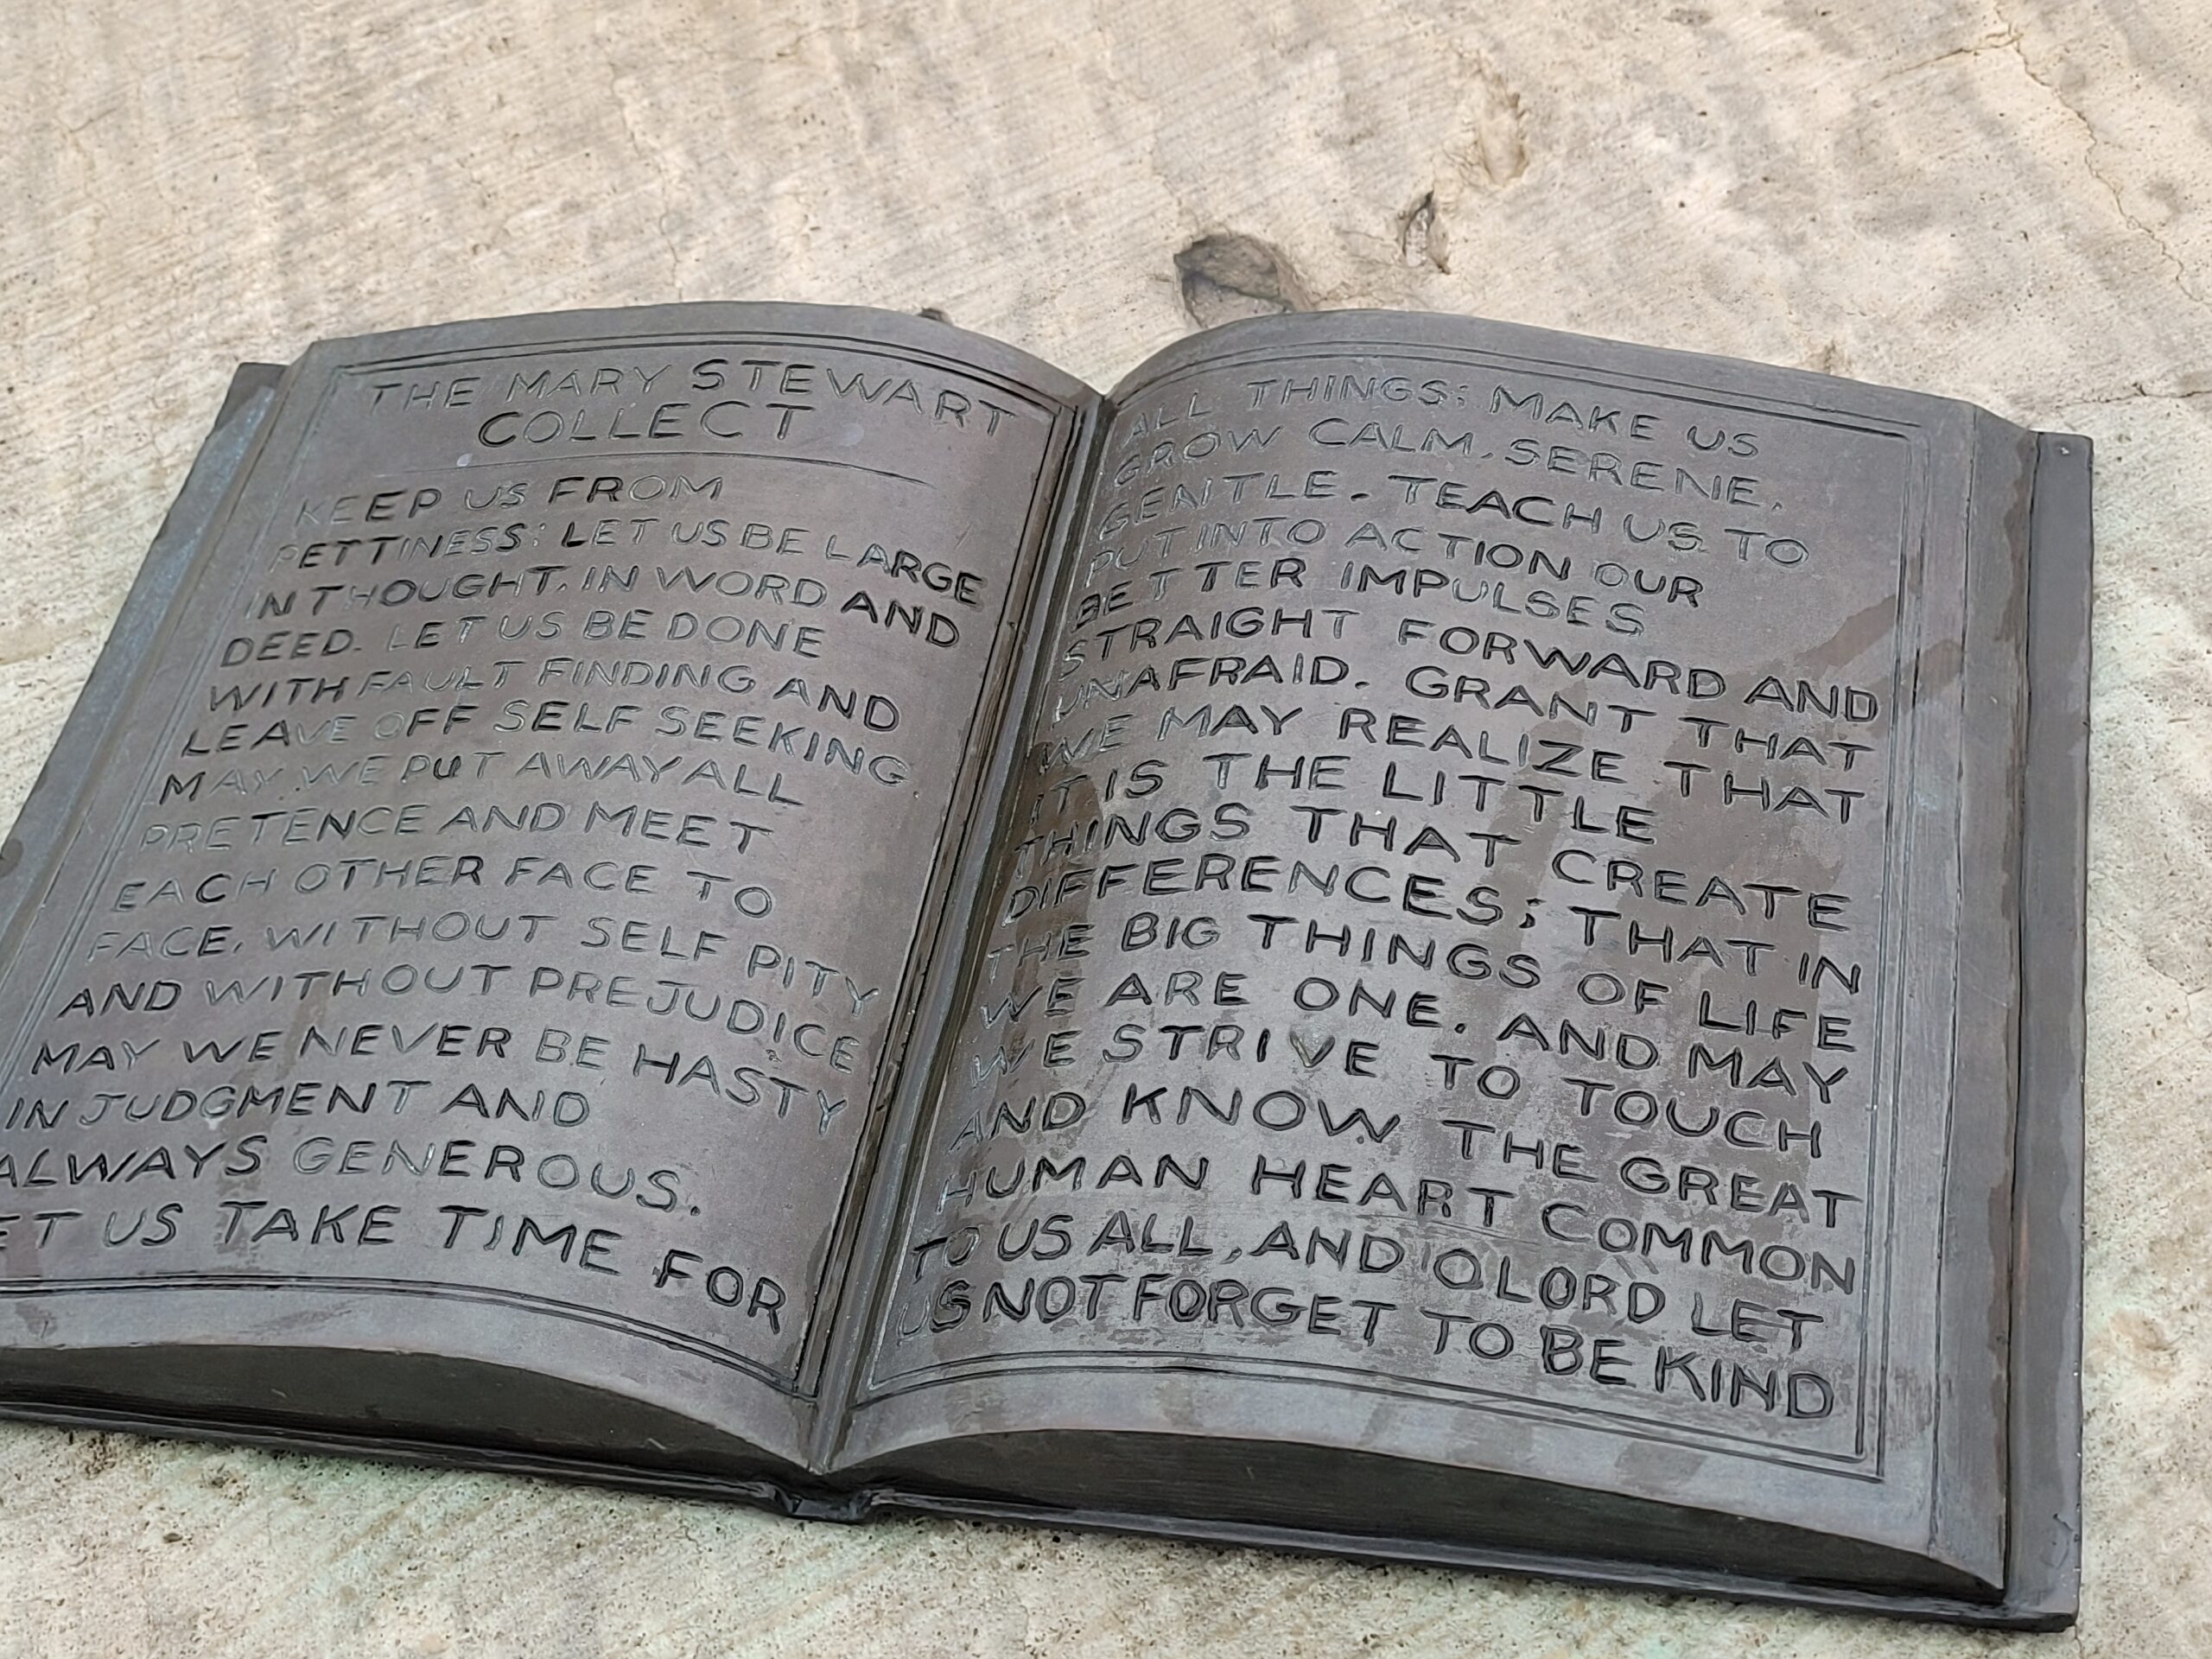 THE MARY STEWART
COLLECT
KEEP US FROM
PETTINESS: LET US BE LARGE
IN THOUGHT, IN WORD AND
DEED. LET US BE DONE
WITH FAULT FINDING AND
LEAVE OFF SELF SEEKING
MAY WE PUT AWAY ALL
PRETENCE AND MEET
EACH OTHER FACE TO
FACE, WITHOUT SELF PITY
AND WITHOUT PREJUDICE
MAY WE NEVER BE HASTY
IN JUDGMENT AND
ALWAYS GENEROUS.
ET US TAKE TIME FOR
ALL THINGS; MAKE US
GROW CALM, SERENE,
GENTLE. TEACH US TO
PUT INTO ACTION OUR
BETTER IMPULSES
STRAIGHT FORWARD AND
UNAFRAID. GRANT THAT
WE MAY REALIZE THAT
IT IS THE LITTLE
THINGS THAT CREATE
DIFFERENCES; THAT IN
THE BIG THINGS OF LIFE
WE ARE ONE. AND MAY
WE STRIVE TO TOUCH
AND KNOW THE GREAT
HUMAN HEART COMMON
TO US ALL, AND O LORD LET
US NOT FORGET TO BE KIND